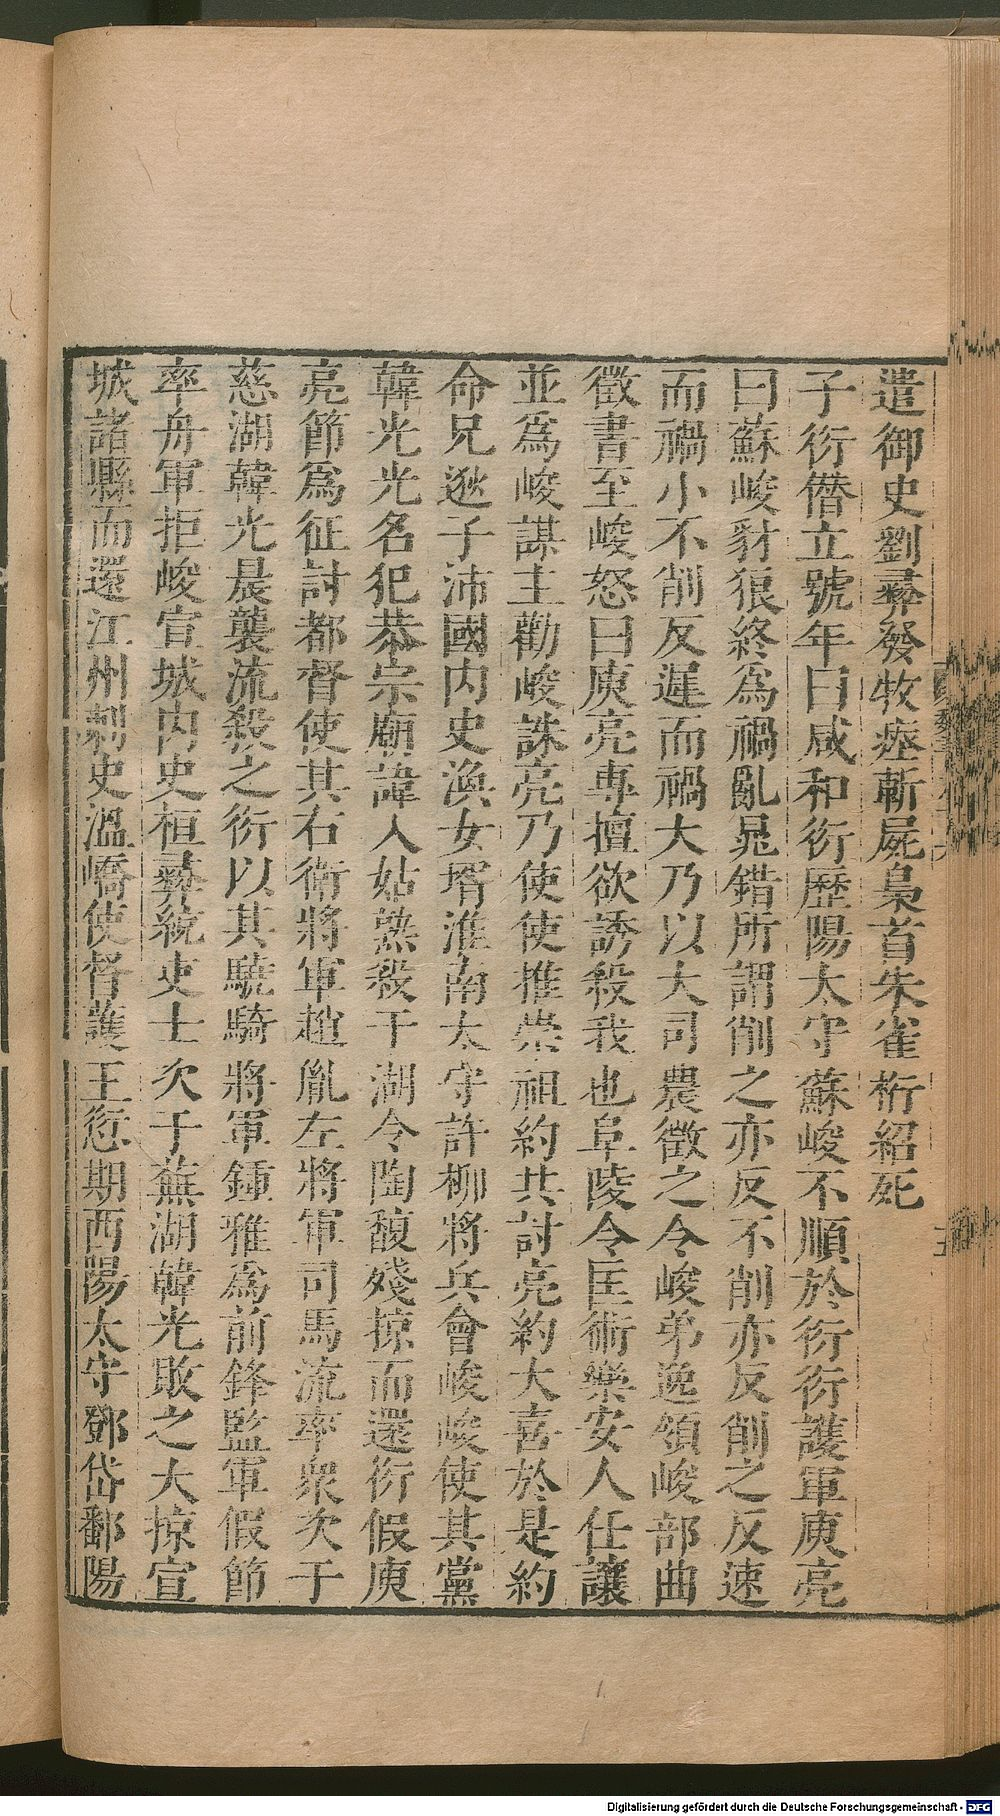 遣御史劉彞發牧瘞斬屍梟首朱雀桁紹死
子衍僭立號年曰咸和衍歷陽太守蘇峻不順於衍衍護軍庾亮
曰蘇峻豺狼終爲禍亂晁錯所謂削之亦反不削亦反削之反速
而禍小不削反遲而禍大乃以大司農徵之令峻弟逸領峻部曲
徵書至峻怒曰庾亮專擅欲誘殺我也阜陵令匡術樂安人任讓
並爲峻謀主勸峻誅亮乃使使推崇祖約共討亮約大喜於是約
命兄逖子沛國内史渙女壻淮南太守許柳將兵會峻峻使其黨
韓光光名犯恭宗廟諱入姑熟殺于湖令陶馥殘掠而還衍假庾
亮節爲征討都督使其右衛將軍趙胤左將軍司馬流率衆次于
慈湖韓光晨襲流殺之衍以其驍騎將軍鍾雅爲前鋒監軍假節
率舟軍拒峻宣城内史桓彞統吏士次于蕪湖韓光敗之大掠宣
城諸縣而還江州刺史溫嶠使督護王愆期西陽太守鄧岱鄱陽
Digitalisierung gefördert durch die Deutsche Forschungsgemeinschaft - DFG